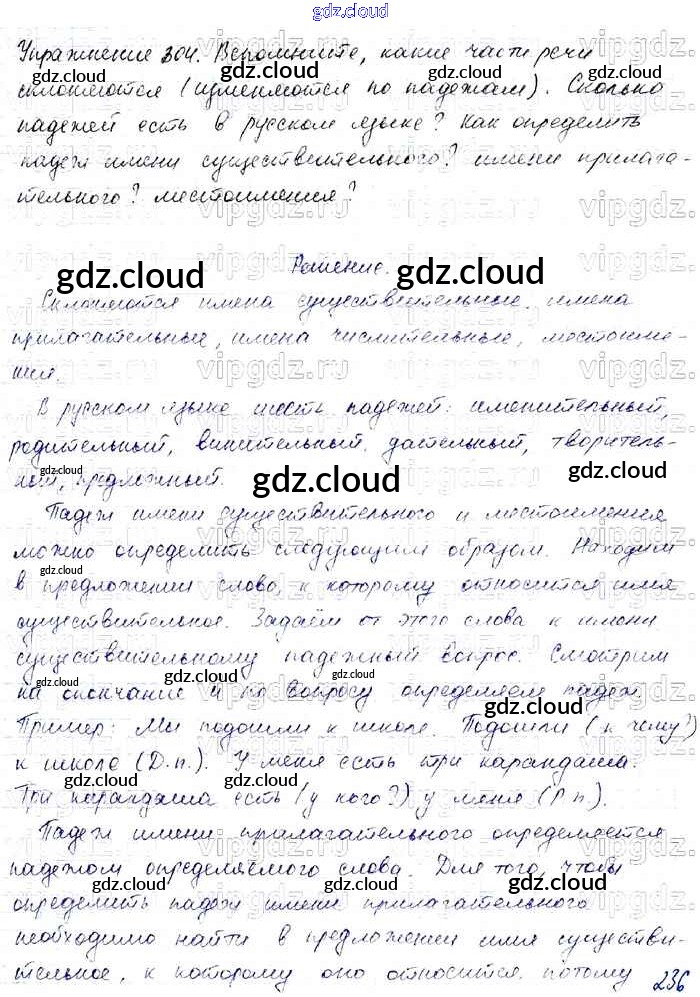 gdz.cloud
Упражнение 304. Вспомните, какие части речи
склоняются (изменяются по падежам). Сколько
падежей есть в русском языке? Как определить
падеж имени существительного? имени прилага-
тельного? местоимения?
Решение.
Склоняются имена существительные, имена
прилагательные, имена числительные, местоиме-
ния.
В русском языке шесть падежей: именительный,
родительный, винительный, дательный, творитель-
ный, предложный.
Падеж имени существительного и местоимения
можно определить следующим образом. Находим
в предложении слово, к которому относится имя
существительное. Задаём от этого слова к имени
существительному падежный вопрос. Смотрим
на окончание и по вопросу определяем падеж.
Пример: Мы подошли к школе. Подошли (к чему?)
к школе (Д.п.). У меня есть три карандаша.
Три карандаша есть (у кого?) у меня (Р.п.).
Падеж имени прилагательного определяется
падежом определяемого слова. Для того, чтобы
определить падеж имени прилагательного
необходимо найти в предложении имя существи-
тельное, к которому оно относится, потому
236